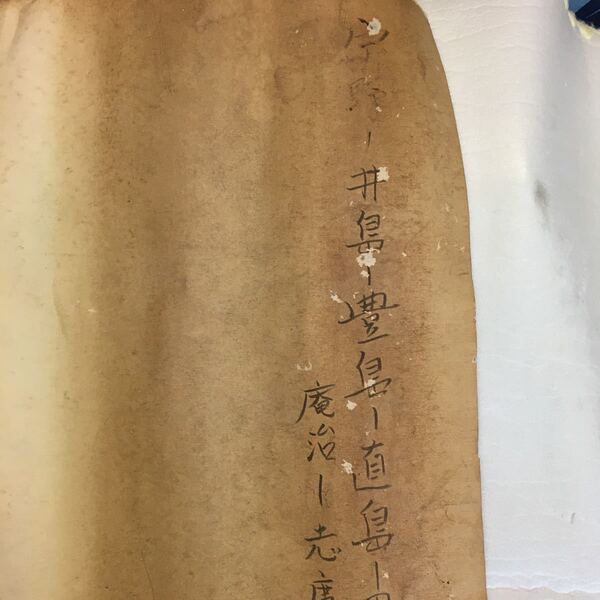 宇野ー井島ー豊島ー直島ー
庵治ー志度